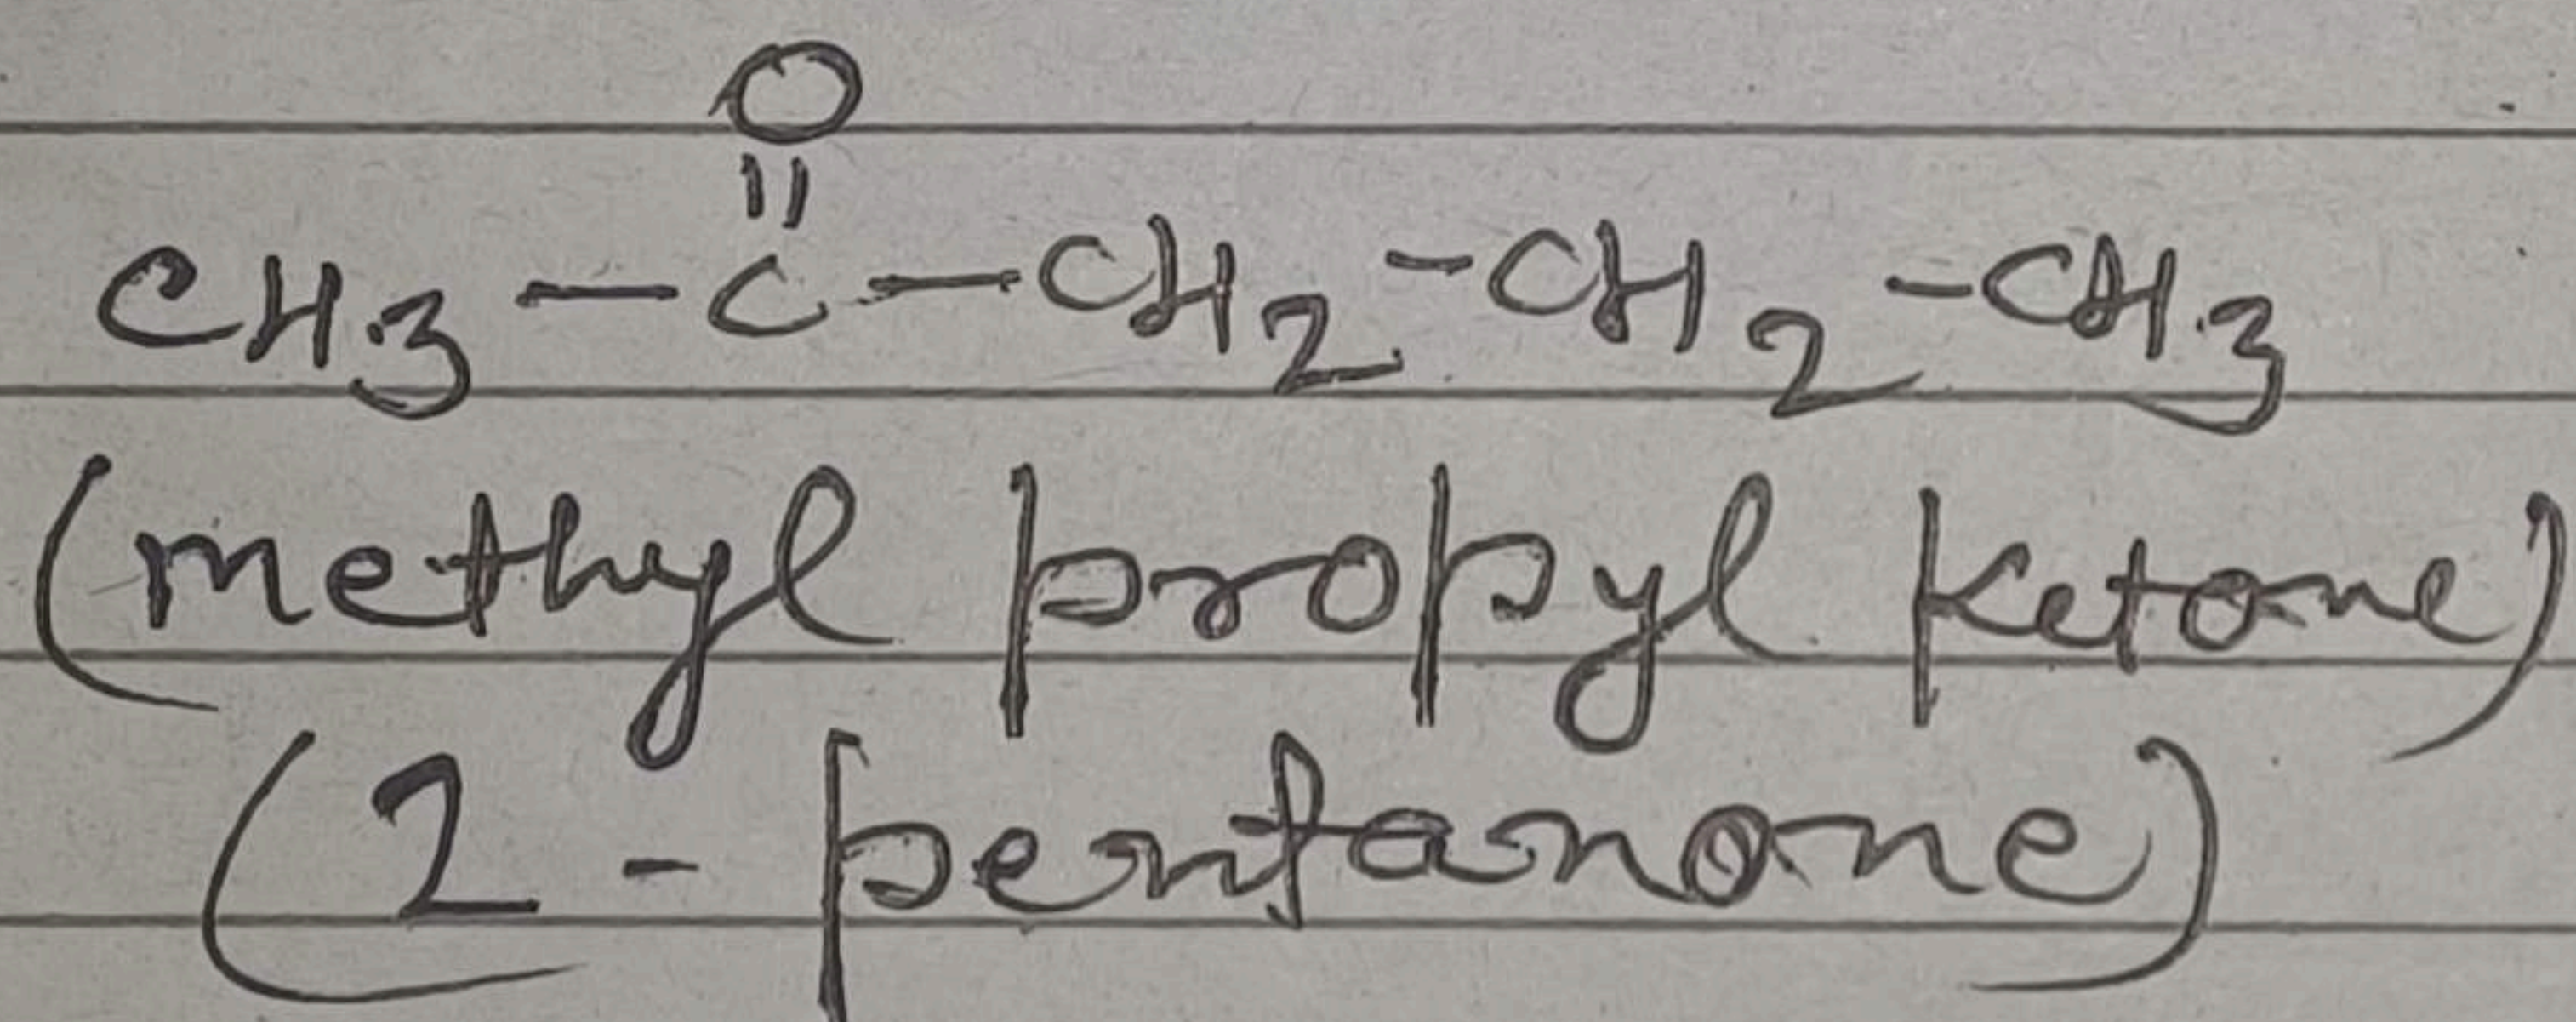 O
||
CH3 - C - CH2 - CH2 - CH3
(methyl propyl ketone)
(2 - pentanone)